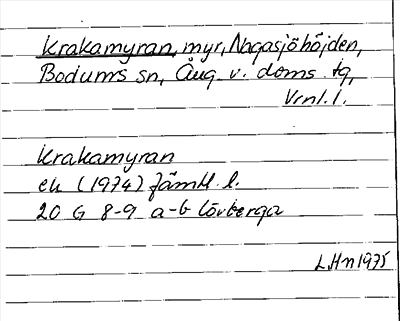 Krakamyran, myr, Nagasjöhöjden,
Bodums sn, Ång. v. doms. tg,
Vrnl. l.
Krakamyran
ek (1974) Jämtl. l.
20 G 8-9 a-b Lövberga
LHn 1975